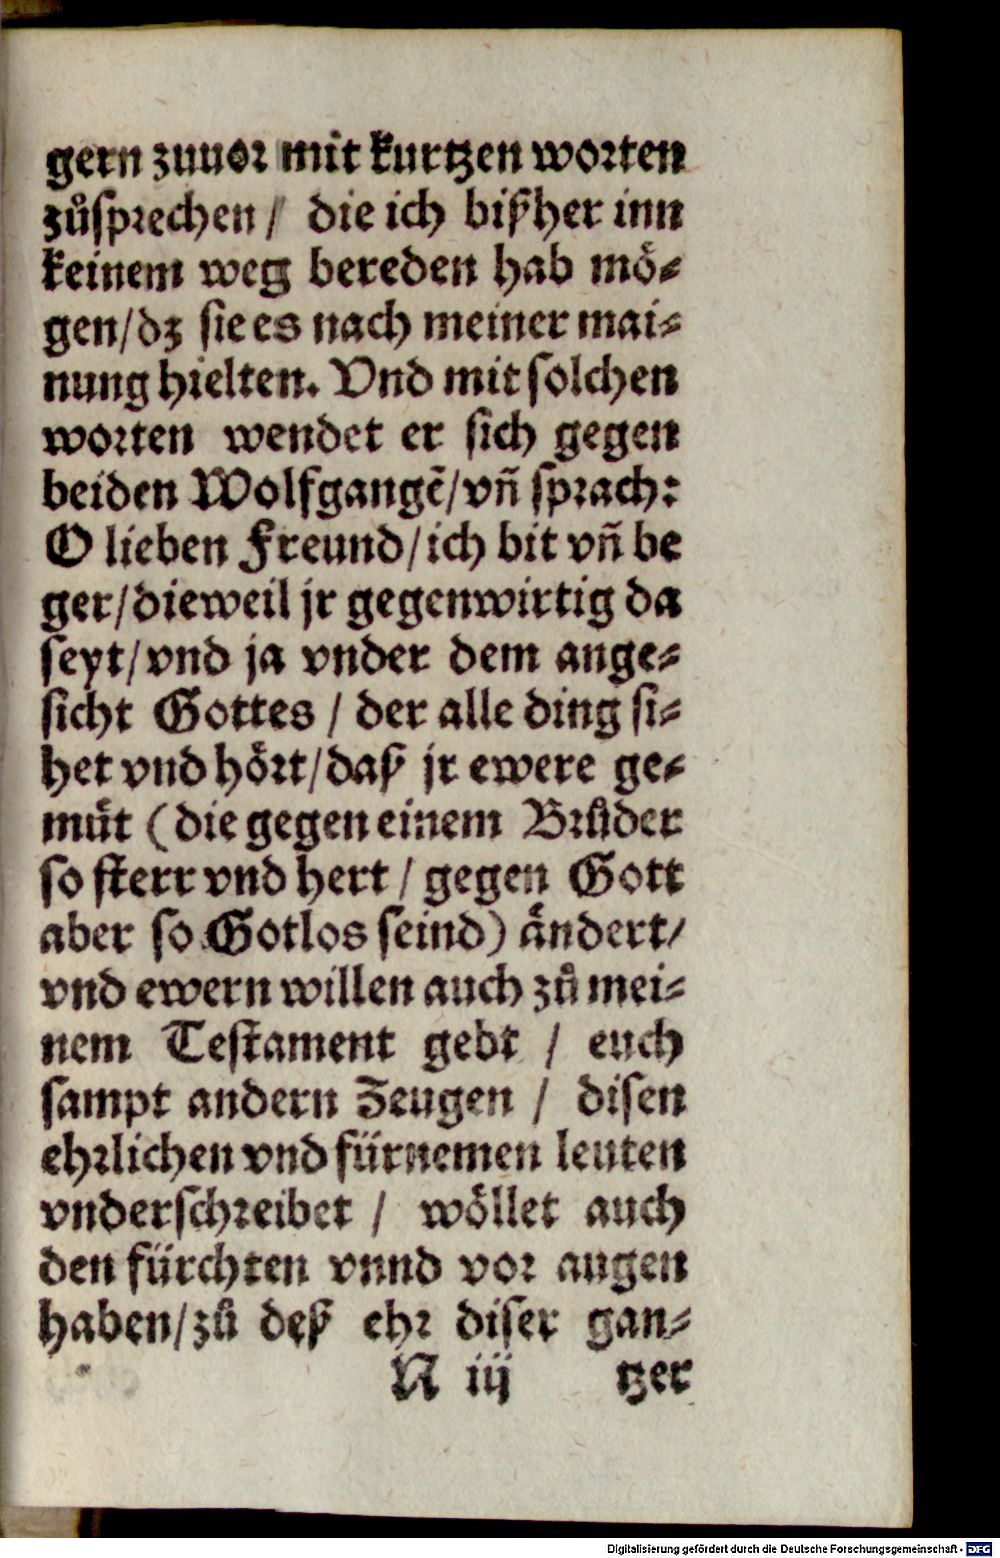 gern zuuor mit kurtzen worten
zůsprechen / die ich bißher inn
keinem weg bereden hab mö-
gen/dz sie es nach meiner mai-
nung hielten. Vnd mit solchen
worten wendet er sich gegen
beiden Wolfgangẽ/vñ sprach:
O lieben Freund/ich bit vñ be
ger/dieweil jr gegenwirtig da
seyt/vnd ja vnder dem ange-
sicht Gottes / der alle ding si-
het vnd hört/daß jr ewere ge-
müt (die gegen einem Brůder
so sterr vnd hert / gegen Gott
aber so Gotlos seind) ändert/
vnd ewern willen auch zů mei-
nem Testament gebt / euch
sampt andern Zeugen / disen
ehrlichen vnd fürnemen leuten
vnderschreibet / wöllet auch
den fürchten vnnd vor augen
haben/zů deß ehr diser gan-
N iij tzer
Digitalisierung gefördert durch die Deutsche Forschungsgemeinschaft - DFG